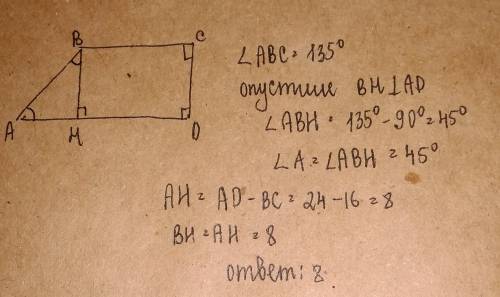 B C
A H D
∠ABC = 135°
опустине BH⊥AD
∠ABH = 135° - 90° = 45°
∠A = ∠ABH = 45°
AH = AD - BC = 24 - 16 = 8
BH = AH = 8
ответ: 8.